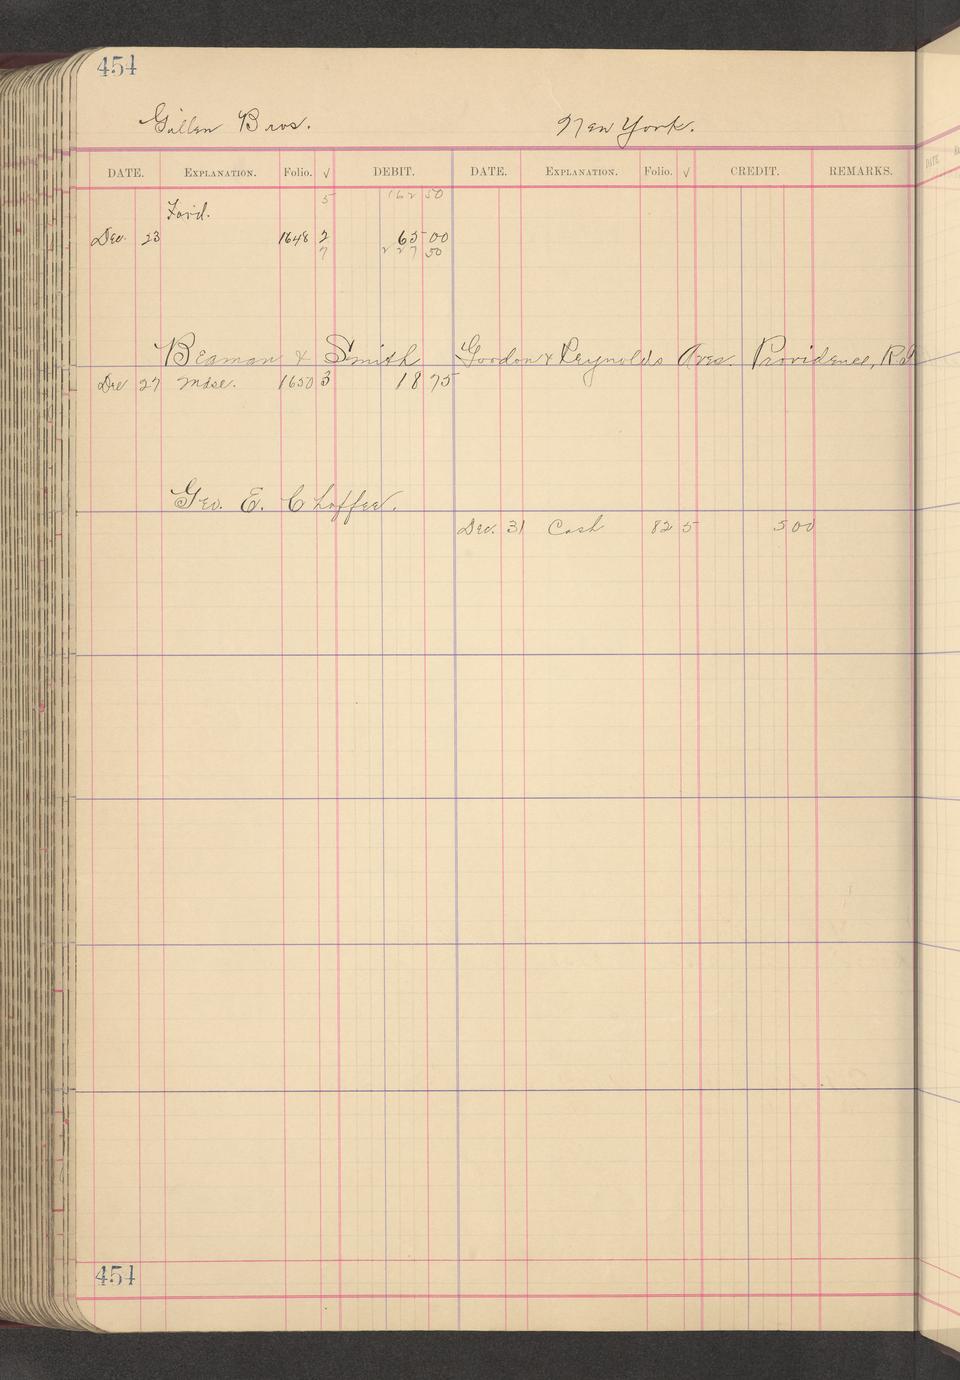 454
Gillen Bros. New York.
DATE. EXPLANATION. Folio. √ DEBIT. DATE. EXPLANATION. Folio. √ CREDIT. REMARKS.
5 162 50
Ford.
Dec. 23 1648 2 65 00
7 227 50
Beaman & Smith Gordon & Reynolds Aves. Providence, R.I.
Dec 27 Mdse. 1650 3 18 75
Geo. E. Chaffee.
Dec. 31 Cash 82 5 5 00
454